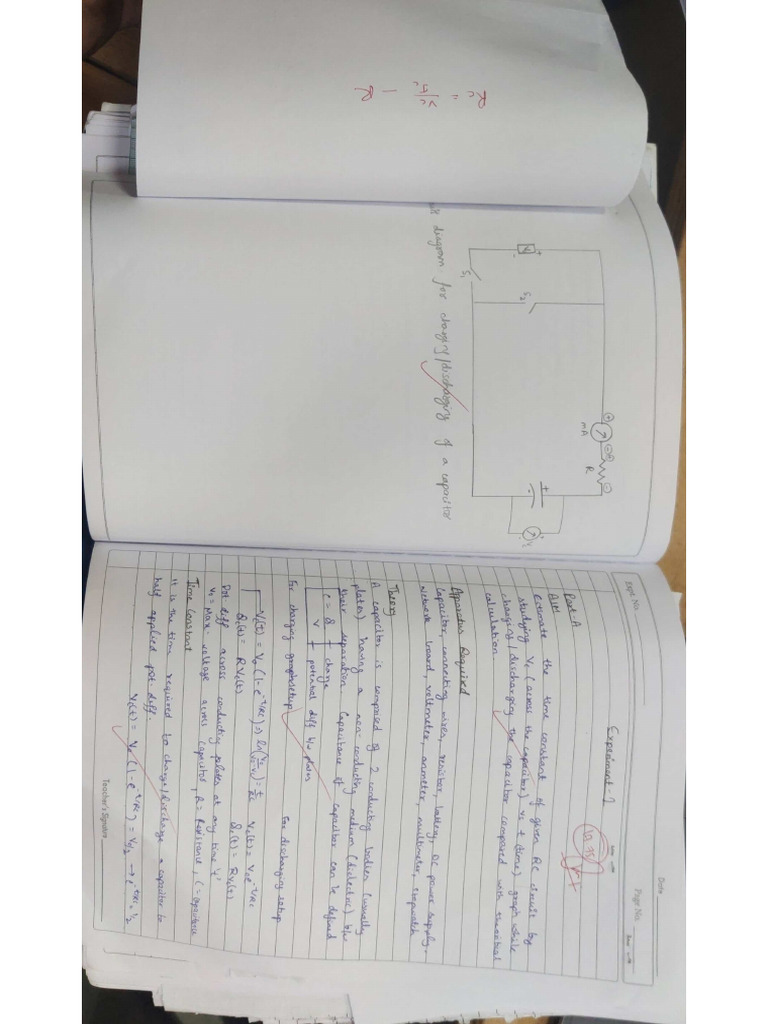 Rc = Vc/Ic - R
diagram for charging/discharging of a capacitor
V
+
-
S1
S2
mA
R
+
-
Expt. No.
Date
Page No.
Experiment - 2
Part-A
Aim
Estimate the time constant of given RC circuit by
studying Vc (across the capacitor) vs t (time) graph while
charging/discharging the capacitor compared with theoretical
calculation
Apparatus Required
Capacitor, connecting wires, resistor, battery, DC power supply,
network board, voltmeter, ammeter, multimeter, stopwatch
Theory
A capacitor is composed of 2 conducting bodies (usually
plates) having a non-conducting medium (dielectric) b/w
their separation. Capacitance of capacitor can be defined
C = Q → charge
V → potential diff b/w plates
For charging setup
For discharging setup
Vc(t) = V0 (1-e^-t/RC)
Vc(t) = V0e^-t/RC
Qc(t) = RVc(t)
Qc(t) = RVc(t)
Pot diff across conducting plates at any time 't'
V0 = Max. voltage across capacitor, R = Resistance, C =
Time Constant
It is the time required to charge/discharge a capacitor to
half applied pot. diff.
Vc(t) = V0 (1-e^-t/RC) = V0/2 → e^-t/RC = 1/2
Teacher's Signature